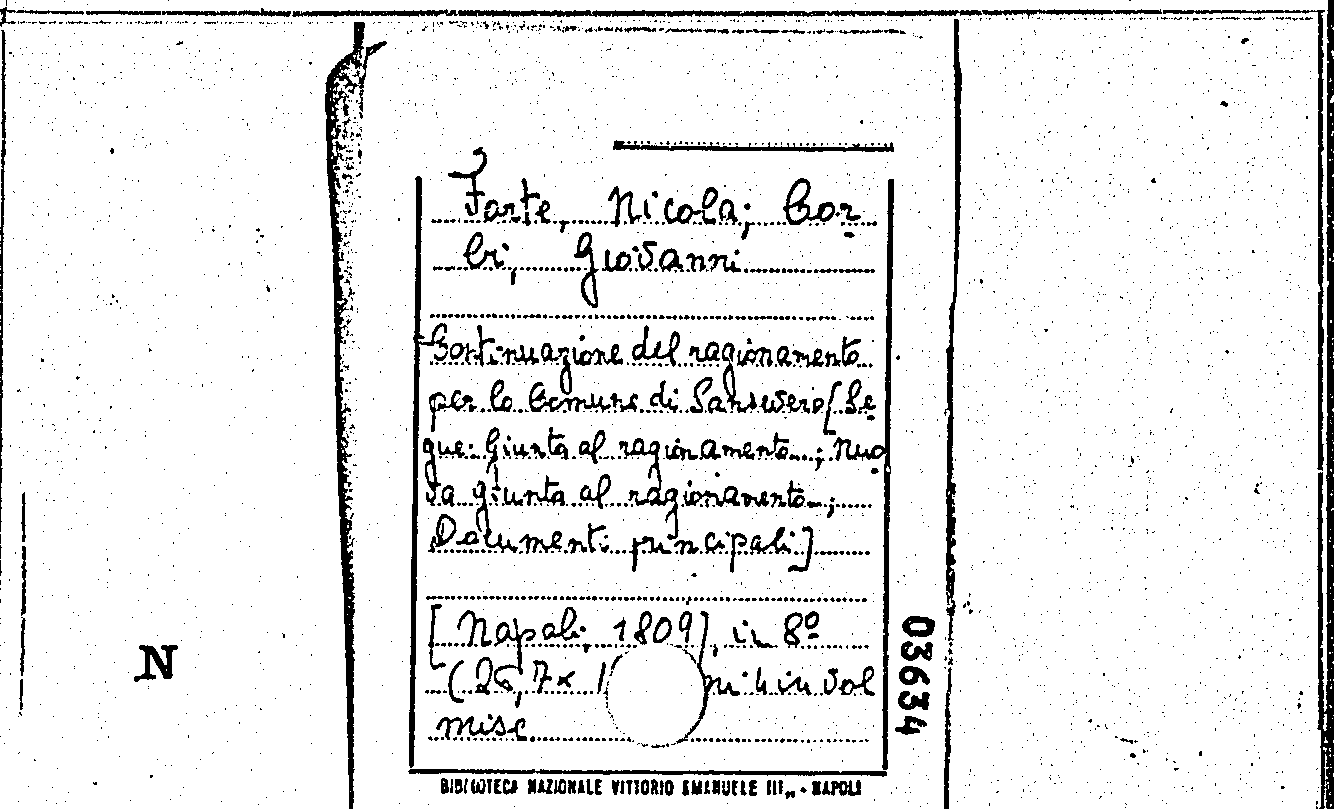 Forte, Nicola; Cor-
bi, Giovanni
Continuazione del ragionamento
per lo Comune di Sansevero [Se-
gue: Giunta al ragionamento...; Nuo-
va giunta al ragionamento...;
Documenti principali]
[Napoli, 1809], in 8º
(26,7x in vol
misc.
BIBLIOTECA NAZIONALE VITTORIO EMANUELE III„ - NAPOLI
03634
N